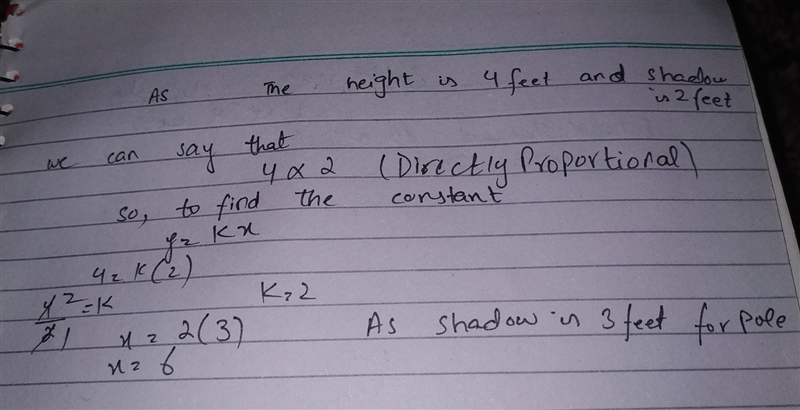 As The height is 4 feet and shadow
is 2 feet
we can say that
4 ∝ 2 (Directly Proportional)
so, to find the constant
y = kx
4 = k(2)
4 2 = k
2 1
K = 2
x = 2(3) As shadow is 3 feet for pole
x = 6